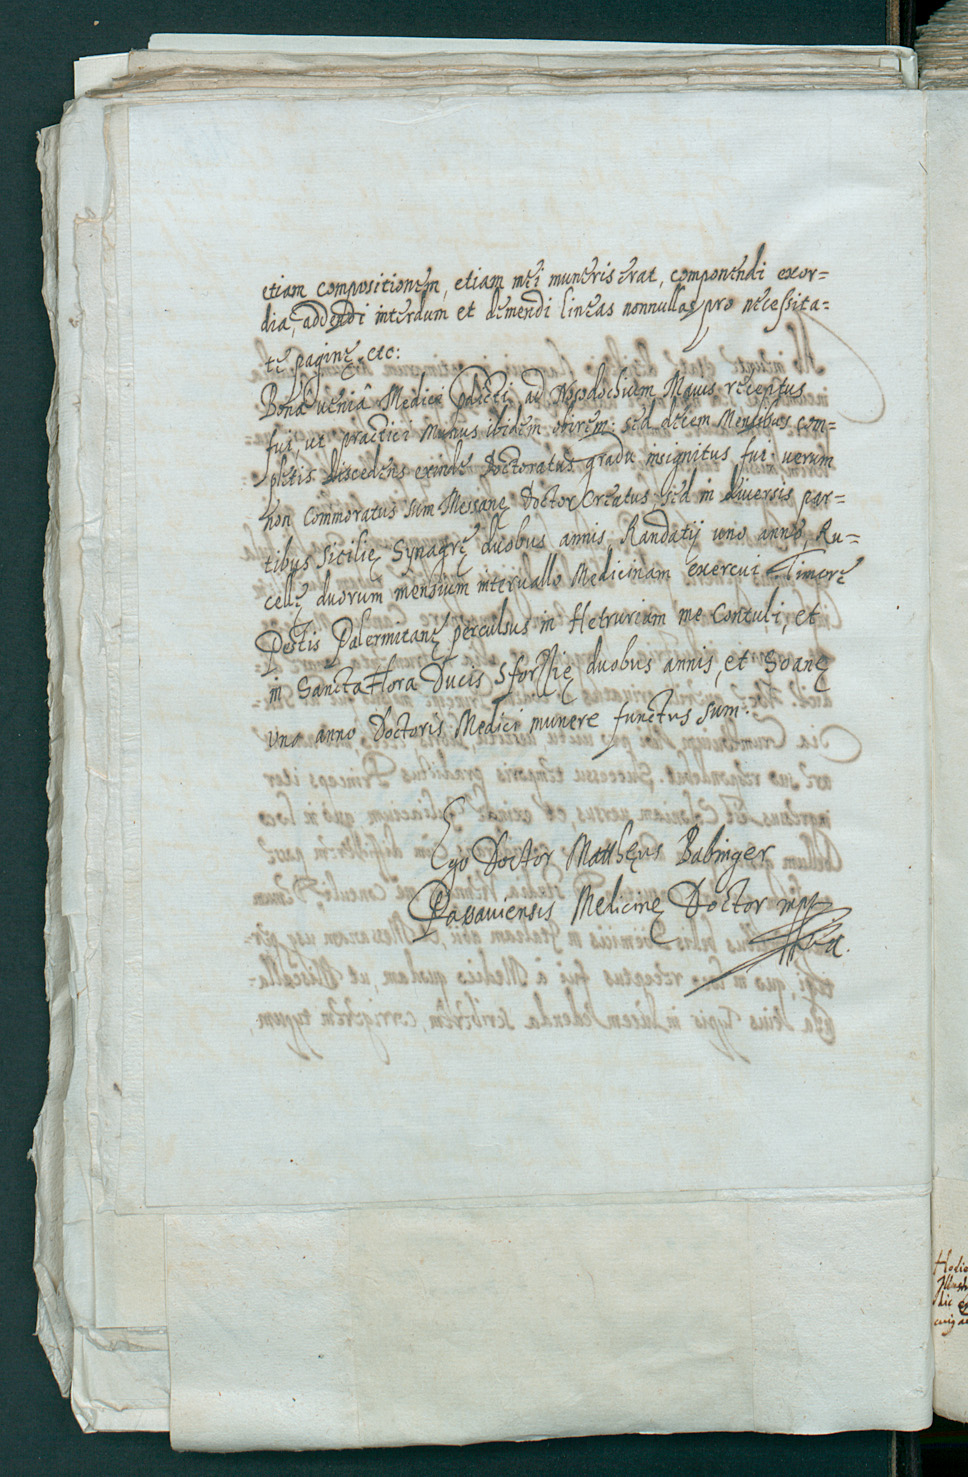 etiam compositionem, etiam mei muneris erat, componendi exor=
dia, addendi interdum et demendi lineas nonnullas pro necessita=
te paginę etc:
Bona veniâ Medici pdicti ad Nosodochium Maius receptus
fui, ut practici munus ibidem obirem: sed decem Mensibus com=
pletis discedens exinde Doctoratus gradu insignitus fui. uerum
non commoratus sum Messanę Doctor Creatus, sed in diuersis par=
tibus Sicilię Synagrę duobus annis, Randatij uno anno, Ru=
cellę duorum mensium interuallo Medicinam exercui. Timore
Pestis Palermitanę perculsus in Hetruriam me Contuli, et
in Sancta Flora Ducis Sfortię duobus annis, et Soanę
uno anno Doctoris Medici munere functus sum.
Ego Doctor Matthęus Babinger
Passauiensis Medicinę Doctor mp